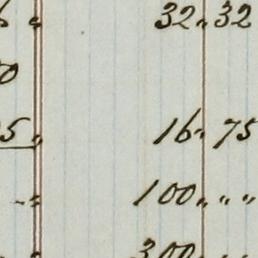 32 " 32
0
5 " 16 " 75
- " 100 " " "
300 " "